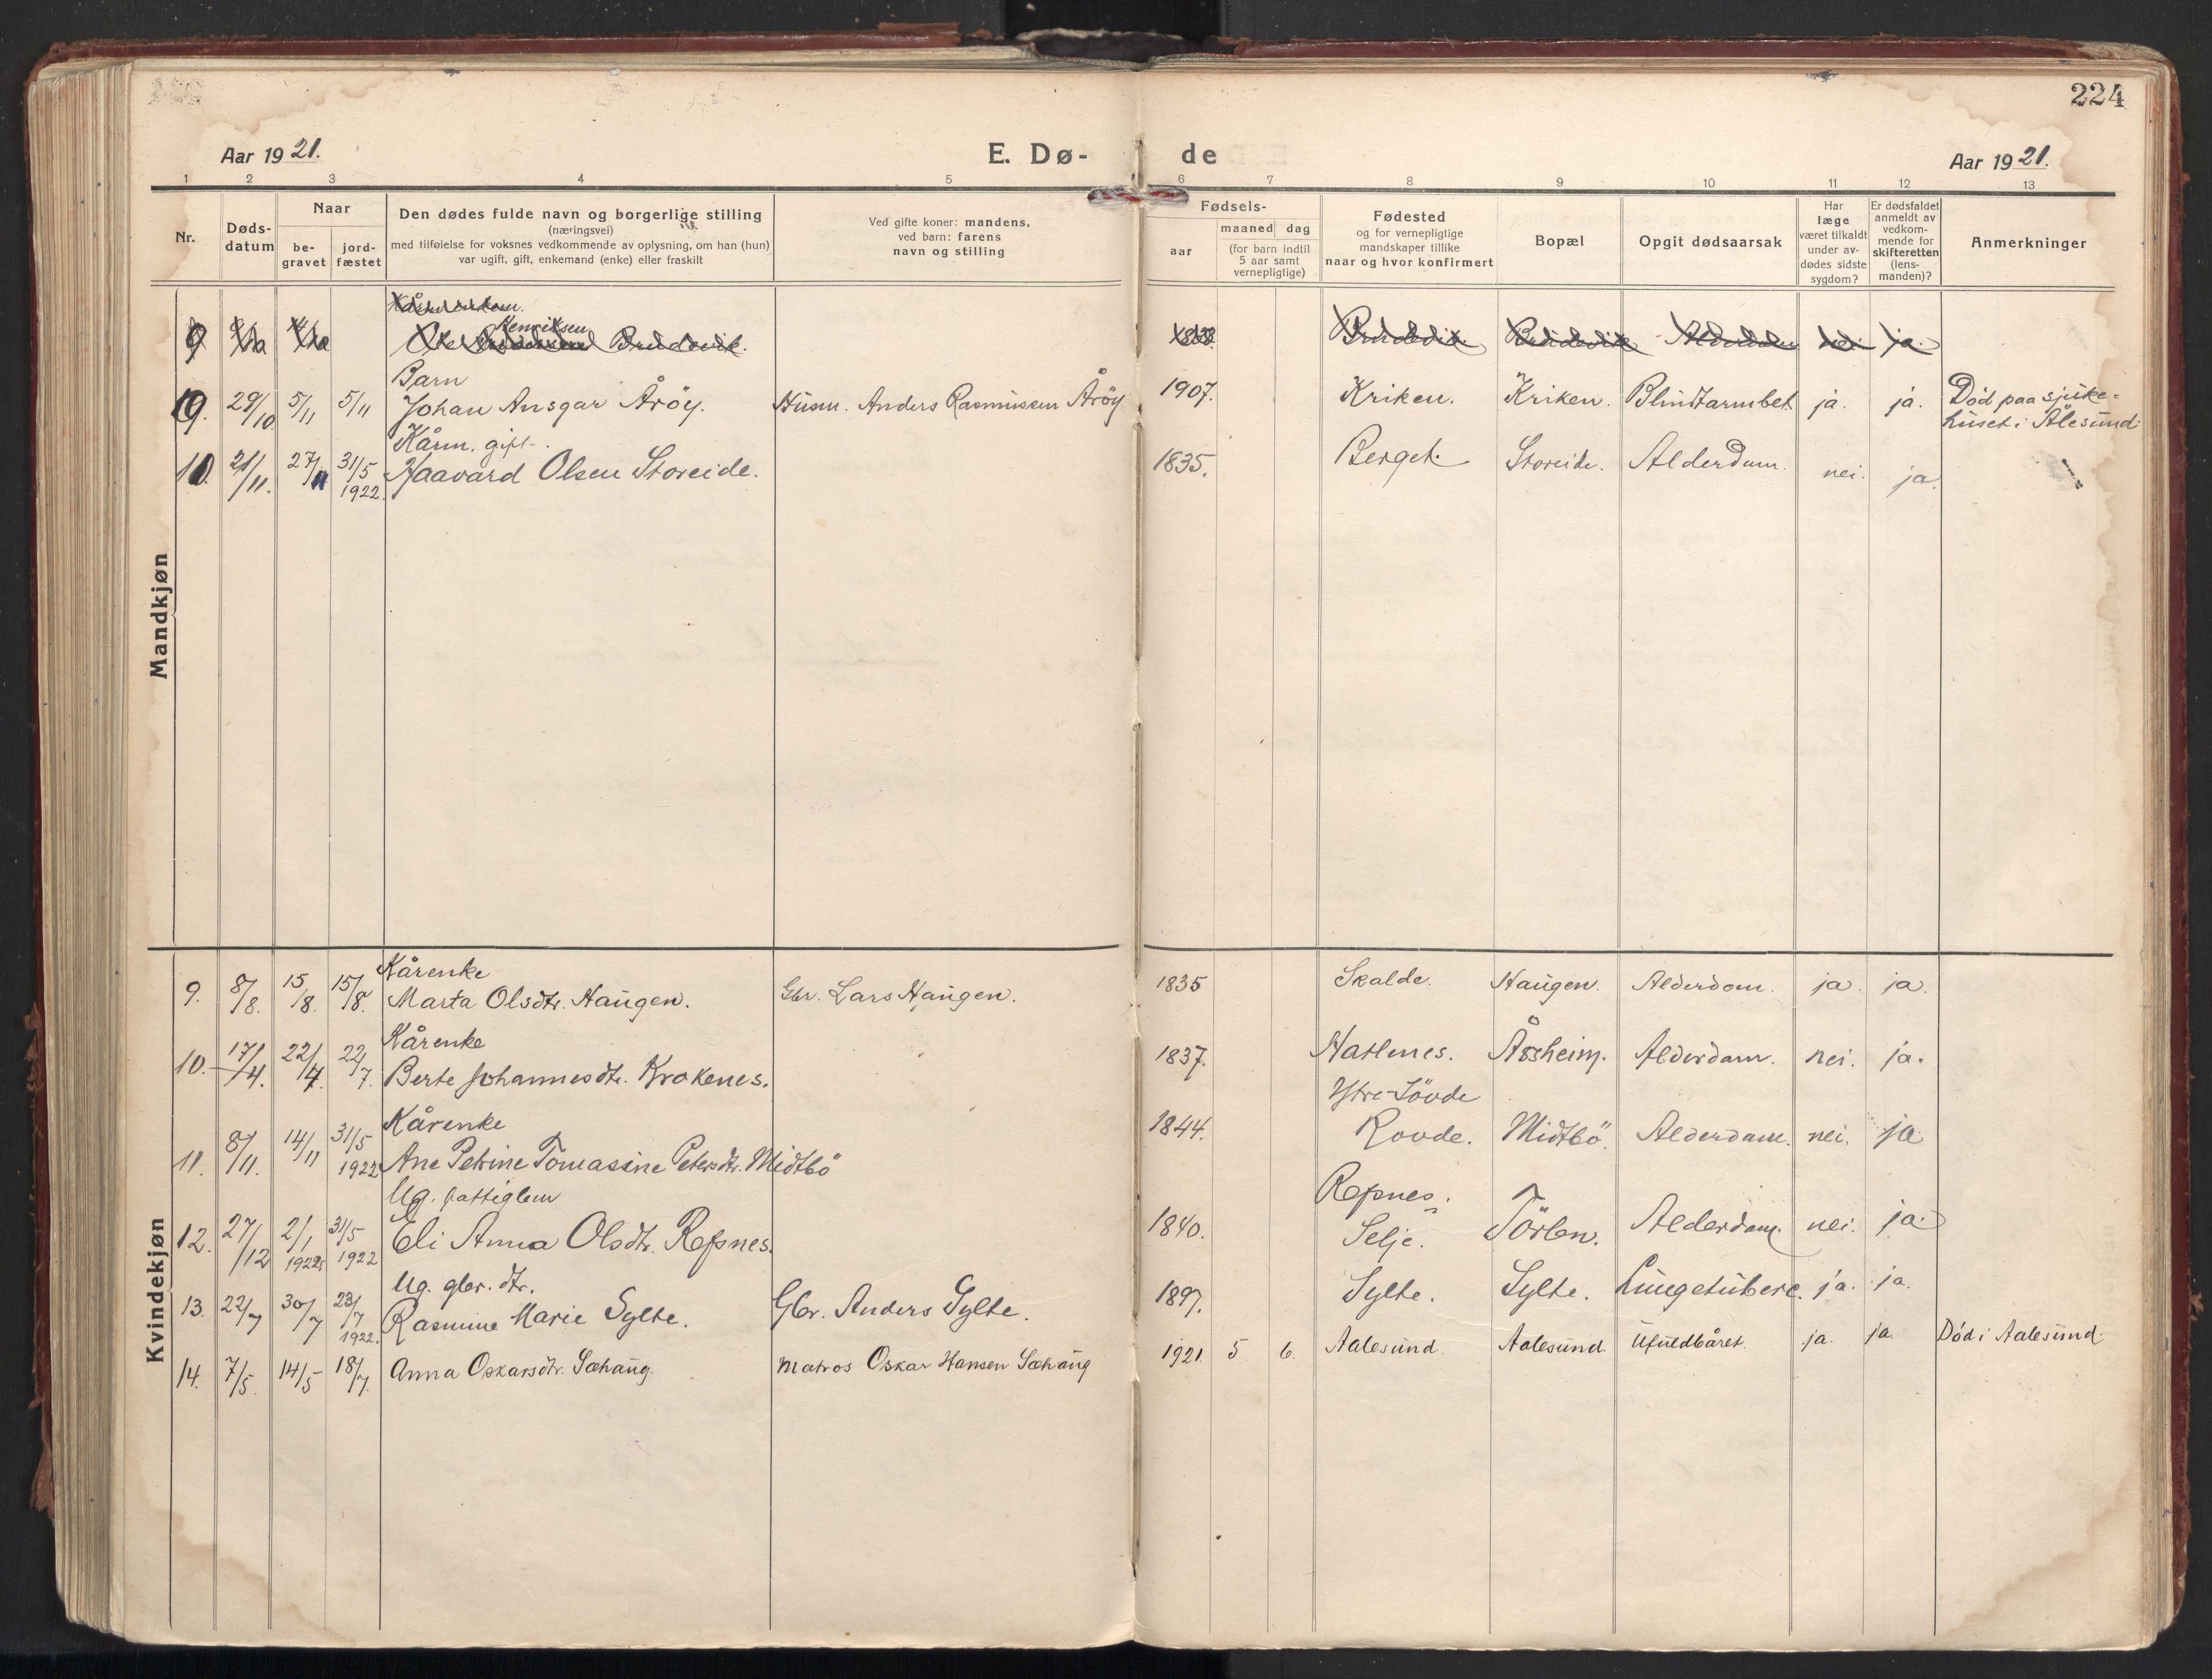 224
Aar 1921.
E. Dø-
de
Aar 1921.
1 2 3 4 5 6 7 8 9 10 11 12 13
Nr.
Døds-
datum
Naar
be-
gravet
jord-
fæstet
Den dødes fulde navn og borgerlige stilling
(næringsvei)
med tilføielse for voksnes vedkommende av oplysning, om han (hun)
var ugift, gift, enkemand (enke) eller fraskilt
Ved gifte koner: mandens,
ved barn: farens
navn og stilling
Fødsels-
aar
maaned dag
(for barn indtil
5 aar samt
vernepligtige)
Fødested
og for vernepligtige
mandskaper tillike
naar og hvor konfirmert
Bopæl
Opgit dødsaarsak
Har
læge
været tilkaldt
under av-
dødes sidste
sygdom?
Er dødsfaldet
anmeldt av
vedkom-
mende for
skifteretten
(lens-
manden)?
Anmerkninger
Mandkjøn
Henriksen
9 Ole Brudevik. Brudevik Brudevik Alderdom nei. ja.
Barn
9. 29/10 5/11 5/11 Johan Ansgar Åröy. Husm. Anders Rasmussen Åröy 1907. Kriken. Kriken. Blindtarmbet. ja. ja. Död paa sjuke-
huset i Ålesund.
Kårm. gift.
10. 21/11. 27/11 31/5 1922. Haavard Olsen Storeide. 1835. Berget. Storeide. Alderdom. nei. ja.
Kvindekjøn
Kårenke
9. 8/8. 15/8. 15/8. Marta Olsdtr. Haugen. Gbr. Lars Haugen. 1835 Skalde. Haugen. Alderdom. ja. ja.
Kårenke
10. 17/4. 22/4. 22/7. Berte Johannesdtr. Krokenes. 1837. Hatlenes. Åssheim. Alderdom. nei. ja.
Kårenke
Ytre-Sövde
11. 8/11. 14/11 31/5 1922 Ane Petrine Tomasine Petersdtr. Midtbö 1844. Rovde. Midtbö. Alderdom. nei. ja
Ug. fattiglem
Refsnes.
12. 27/12 2/1 1922. 31/5 1922 Eli Anna Olsdtr. Refsnes. 1840. Selje. Törlen. Alderdom. nei. ja.
Ug. gbr. dtr.
13. 22/7 30/7 23/7 1922. Rasmine Marie Sylte. Gbr. Anders Sylte. 1897. Sylte. Sylte. Lungetuberc. ja. ja.
14. 7/5. 14/5 18/7. Anna Oskarsdtr. Sæhaug. Matros Oskar Hansen Sæhaug 1921. 5 6. Aalesund. Aalesund. Ufuldbåret. ja. ja. Död i Aalesund.